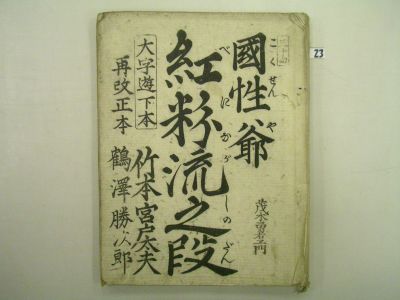 23
國性爺
こくせんや
紅粉流之段
べにながしのだん
大字遊下本
再改正本
竹本宮戸太夫
鶴澤勝次郎